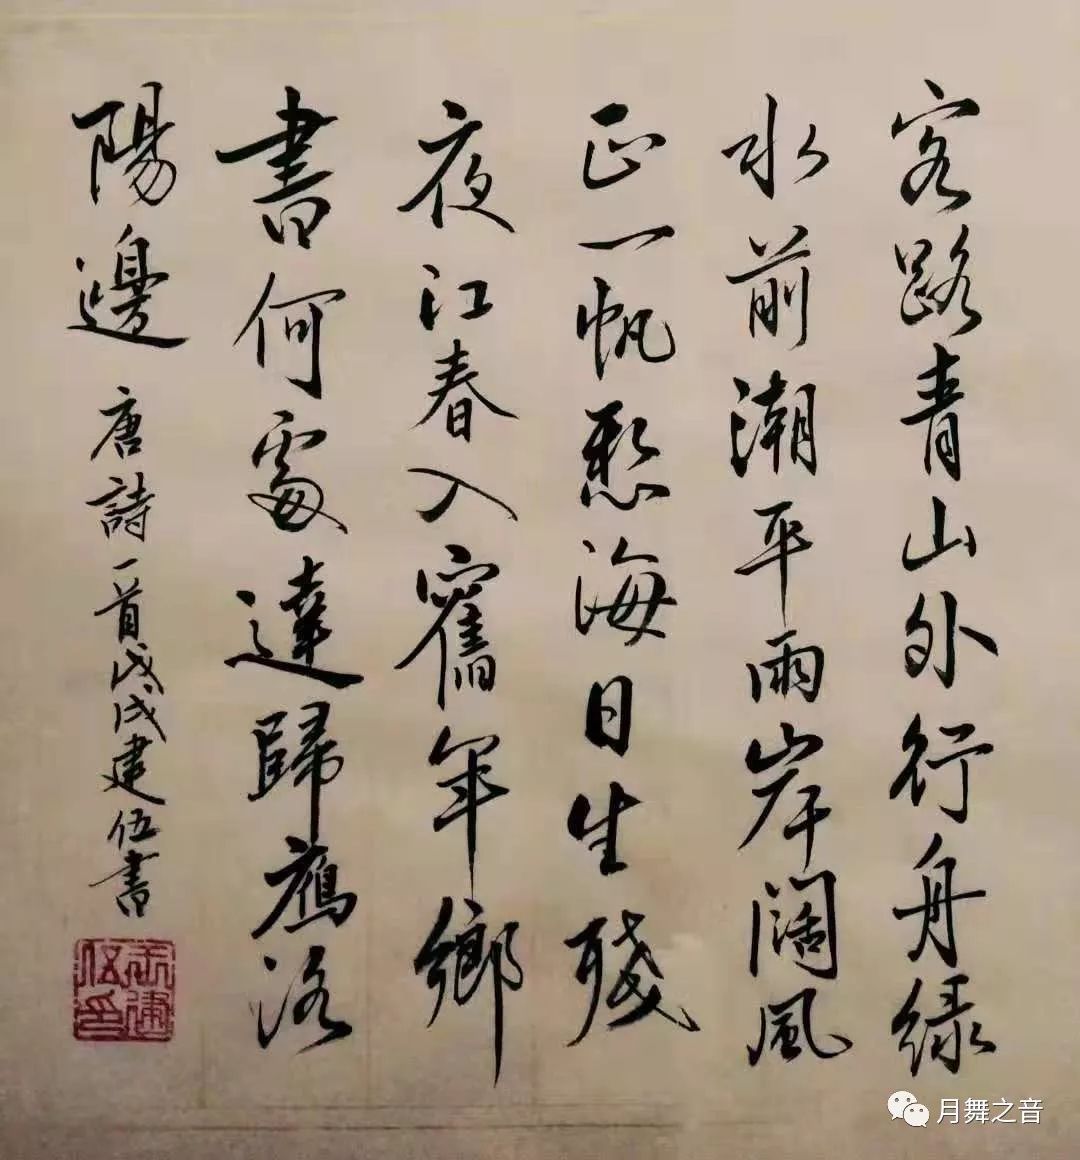 客路青山外行舟綠
水前潮平雨岸闊風
正一帆懸海日生殘
夜江春入舊年鄉
書何處達歸鴈洛
陽邊
唐詩一首戊戌建伍書
月舞之音